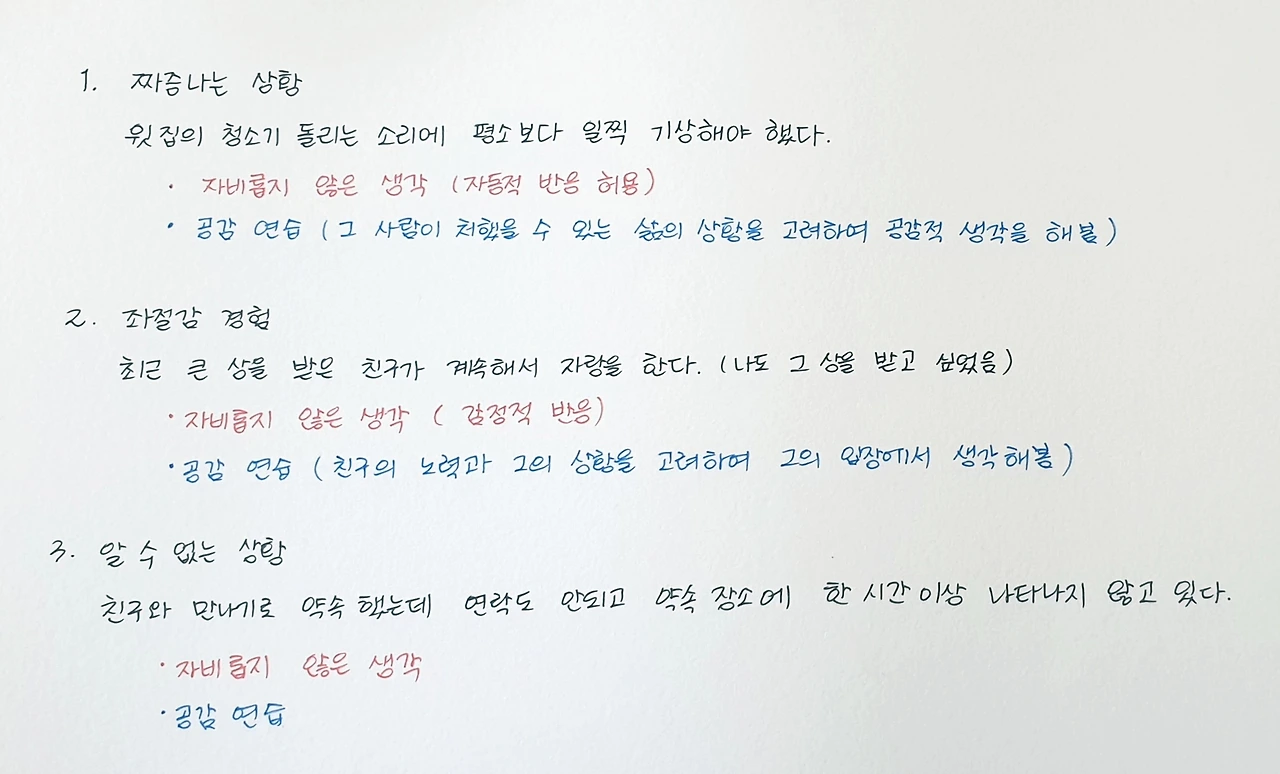 1. 짜증나는 상황
윗집의 청소기 돌리는 소리에 평소보다 일찍 기상해야 했다.
· 자비롭지 않은 생각 (자동적 반응 허용)
· 공감 연습 (그 사람이 처했을 수 있는 삶의 상황을 고려하여 공감적 생각을 해봄)
2. 좌절감 경험
최근 큰 상을 받은 친구가 계속해서 자랑을 한다. (나도 그 상을 받고 싶었음)
· 자비롭지 않은 생각 (감정적 반응)
· 공감 연습 (친구의 노력과 그의 상황을 고려하여 그의 입장에서 생각해봄)
3. 알 수 없는 상황
친구와 만나기로 약속 했는데 연락도 안되고 약속 장소에 한 시간 이상 나타나지 않고 있다.
· 자비롭지 않은 생각
· 공감 연습